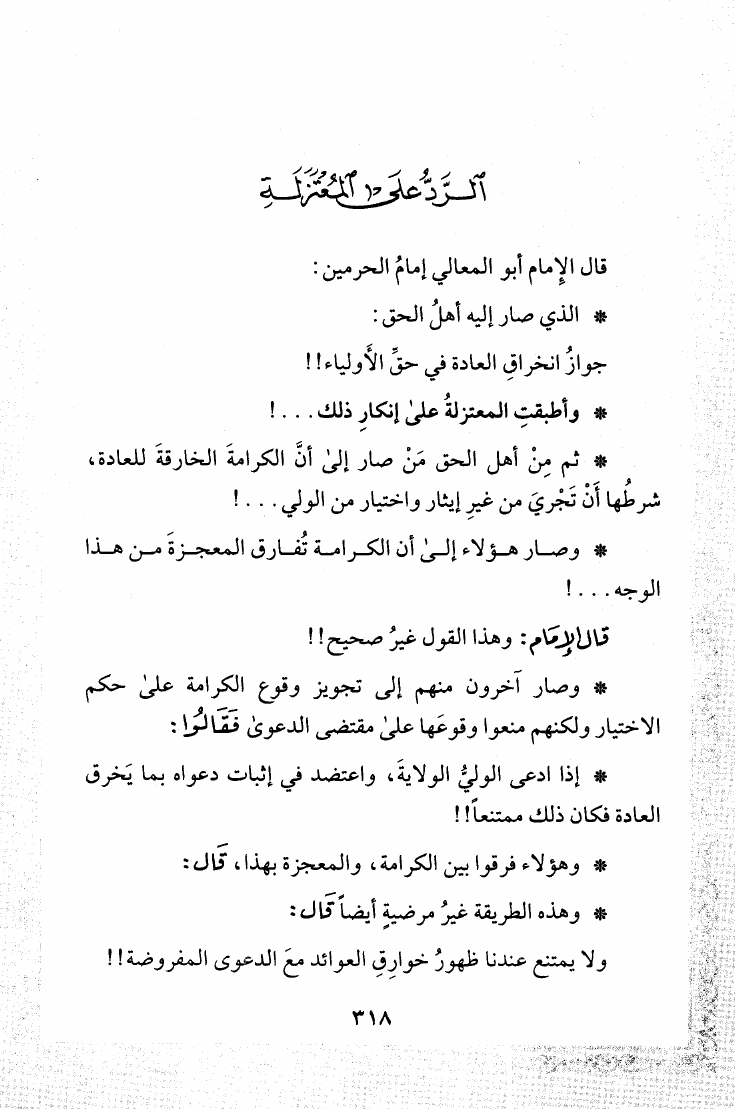 الرَّدُّ عَلَى المُعْتَزِلَةِ
قال الإمام أبو المعالي إمامُ الحرمين:
* الذي صار إليه أهلُ الحق:
جوازُ انخراقِ العادة في حقِّ الأَولياء!!
* وأطبقتِ المعتزلةُ علىٰ إنكارِ ذلك...!
* ثم مِنْ أهل الحق مَنْ صار إلىٰ أنَّ الكرامةَ الخارقةَ للعادة،
شرطُها أَنْ تَجْريَ من غيرِ إيثار واختيار من الولي...!
* وصار هؤلاء إلىٰ أن الكرامة تُفارق المعجزةَ من هذا
الوجه...!
قَالَ الإِمَام: وهذا القول غيرُ صحيح!!
* وصار آخرون منهم إلى تجويز وقوع الكرامة علىٰ حكم
الاختيار ولكنهم منعوا وقوعَها علىٰ مقتضى الدعوىٰ فَقَالُوا:
* إذا ادعى الوليُّ الولايةَ، واعتضد في إثبات دعواه بما يَخرق
العادة فكان ذلك ممتنعاً!!
* وهؤلاء فرقوا بين الكرامة، والمعجزة بهذا، قَال:
* وهذه الطريقة غيرُ مرضيةٍ أيضاً قَال:
ولا يمتنع عندنا ظهورُ خوارِقِ العوائد معَ الدعوى المفروضة!!
٣١٨